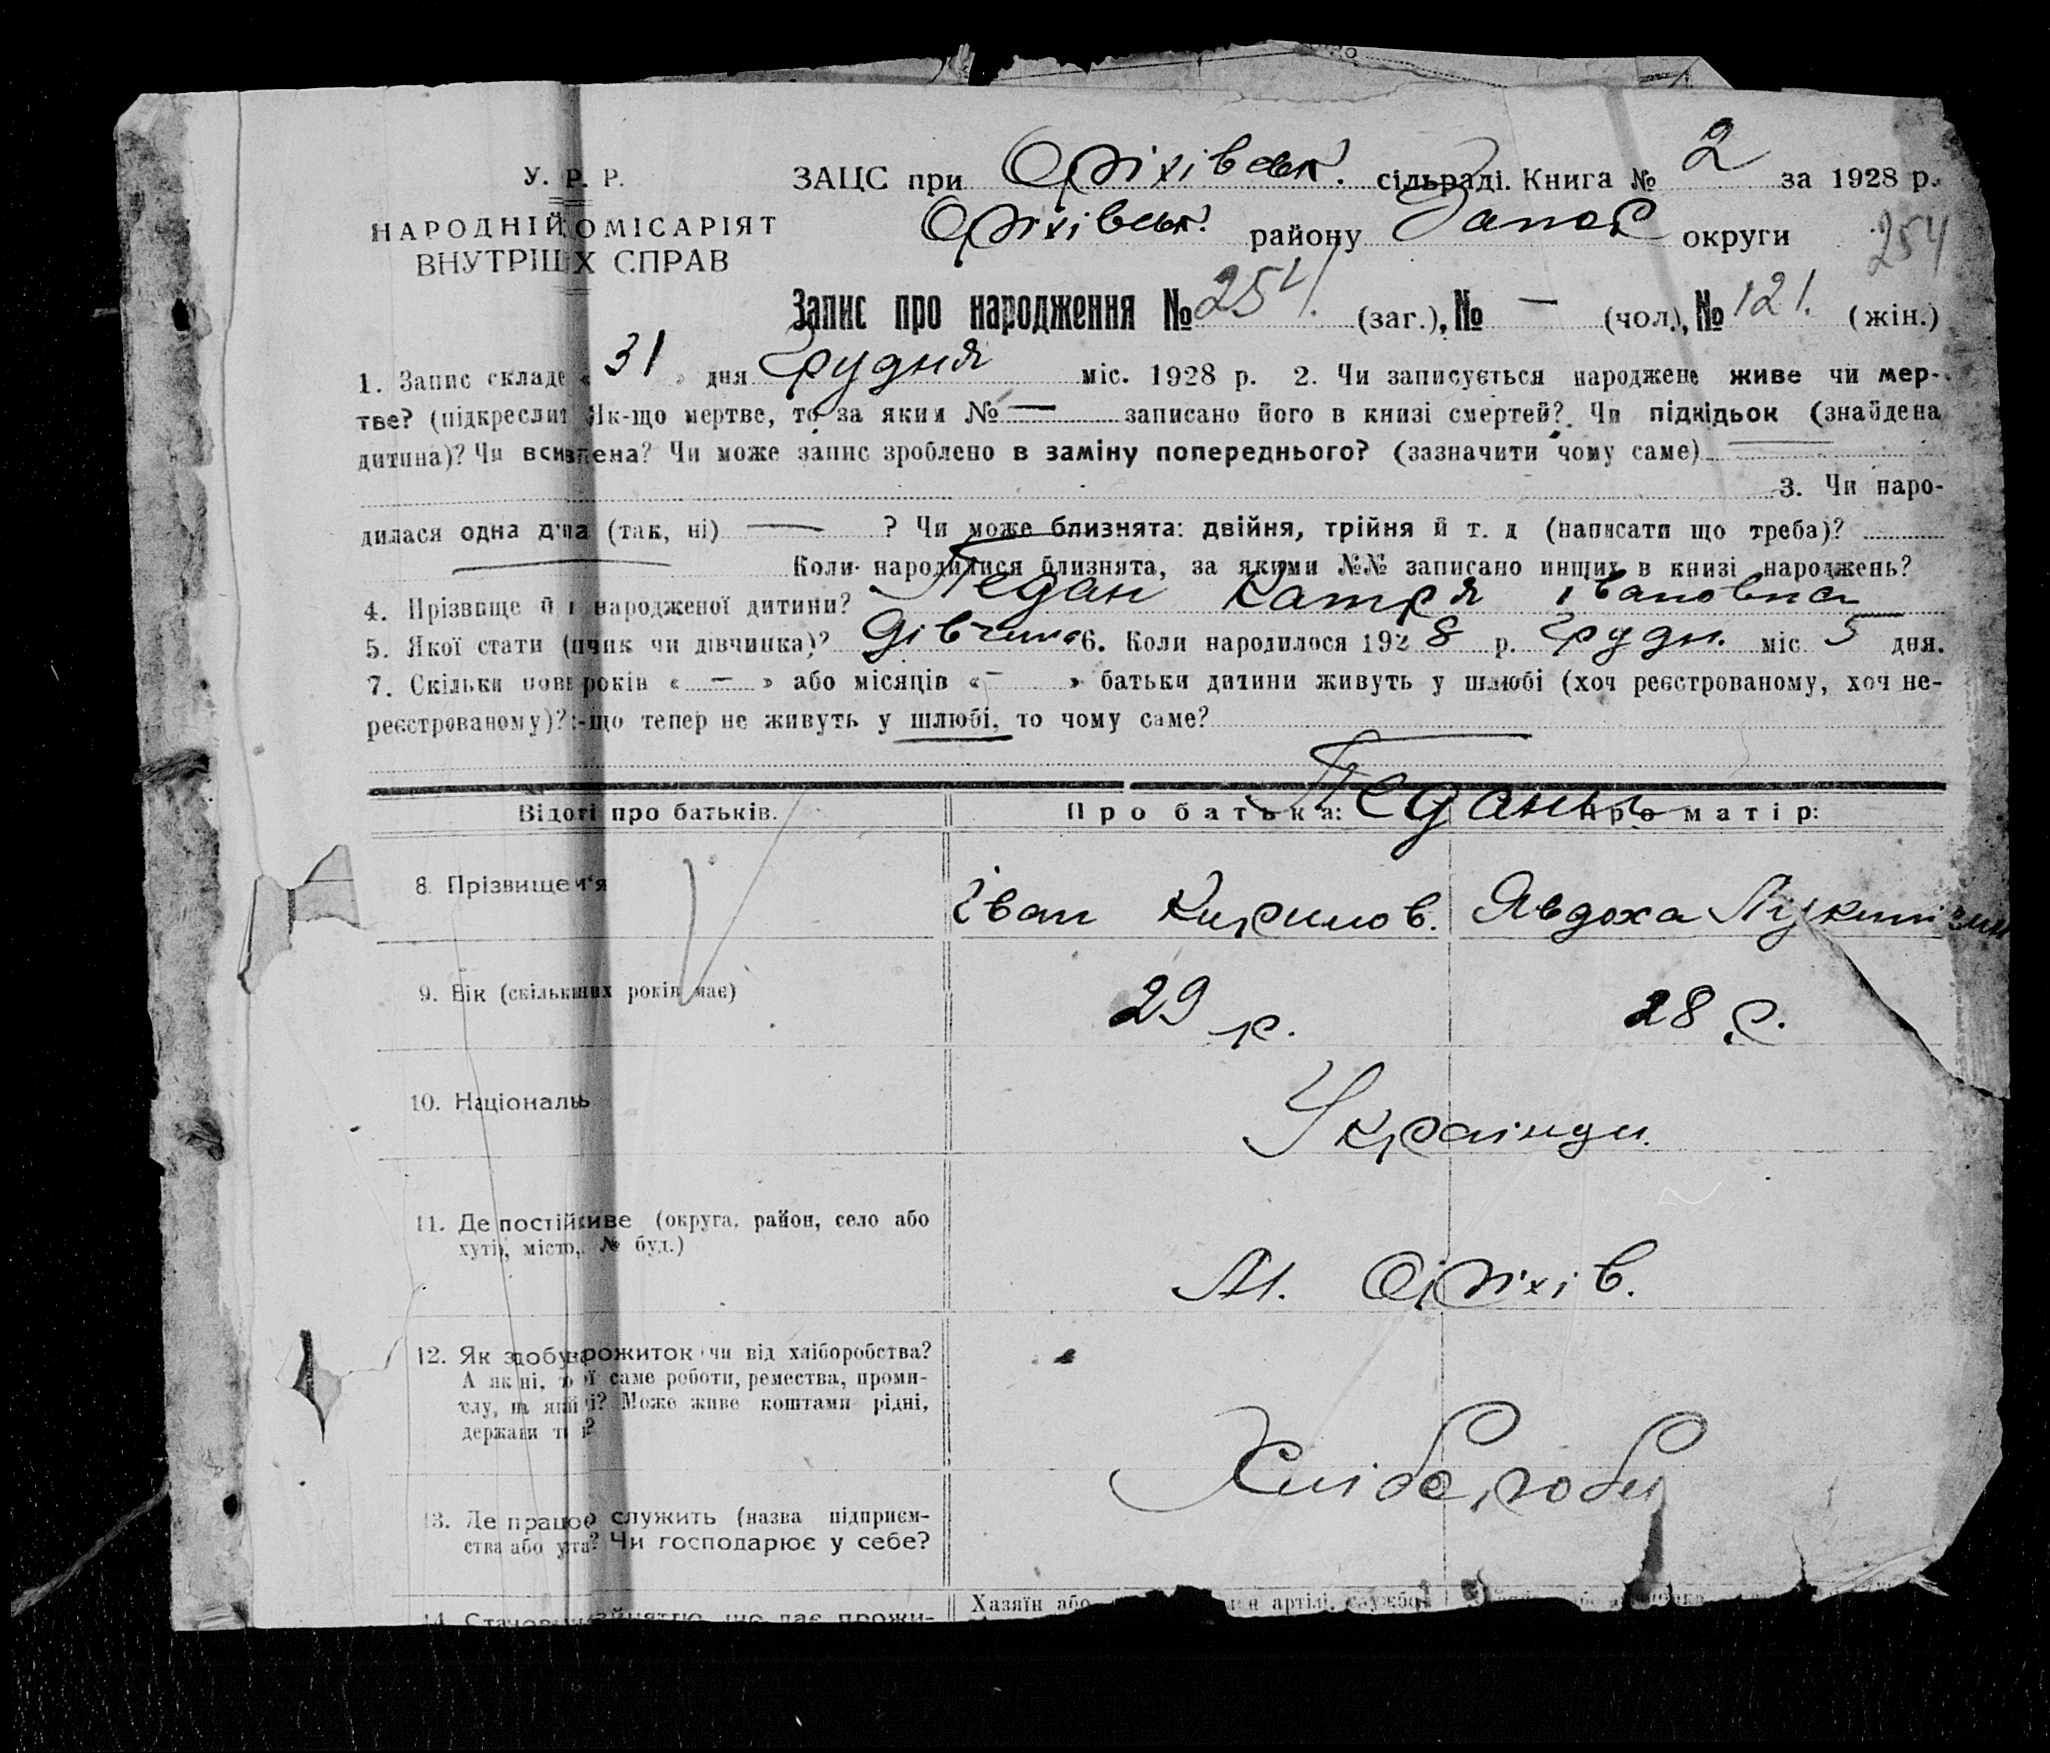 У. Р. Р. ЗАЦС при Оріхівськ. сільраді. Книга № 2 за 1928 р.
НАРОДНІЙ ОМІСАРІЯТ Оріхівськ. району Запор округи 254
ВНУТРІШ Х СПРАВ
Запис про народження № 254. (заг.), № — (чол.), № 121. (жін.)
1. Запис складе « 31 » дня Грудня міс. 1928 р. 2. Чи записується народжене живе чи мер-
тве? (підкреслит Як-що мертве, то за яким № — записано його в книзі смертей? Чи підкідьок (знайдена
дитина)? Чи Чи може запис зроблено в заміну попереднього? (зазначити чому саме)
3. Чи наро-
дилася одна д на (так, ні) — ? Чи може близнята: двійня, трійня й т. д (написати що треба)?
Коли народилися близнята, за якими №№ записано инших в книзі народжень?
4. Прізвище й і народженої дитини? Педан Катря Івановна
5. Якої стати ( чик чи дівчинка)? Дівчина 6. Коли народилося 1928 р. Грудн. міс 5 дня.
7. Скільки повн років « — » або місяців « — » батьки дитини живуть у шлюбі (хоч реєстрованому, хоч не-
реєстрованому)? -що тепер не живуть у шлюбі, то чому саме?
Відо ті про батьків. Про батька: Педань Про матір:
8. Прізвище м'я Іван Кирилов. Явдоха
9. Вік (скільки них років має) 29 р. 28 р.
10. Національ ь Українци.
11. Де постій живе (округа, район, село або
хутір, місто, № буд.) М. Оріхів.
12. Як здобува рожиток чи від хліборобства?
А як ні, то ї саме роботи, ремества, проми-
слу, на якій і? Може живе коштами рідні,
держави т і? Хлібороби
13. Де працює служить (назва підприєм-
ства або уста? Чи господарює у себе?
14. Станови йняттю, що дає прожи- Хазяїн або артілі, службо